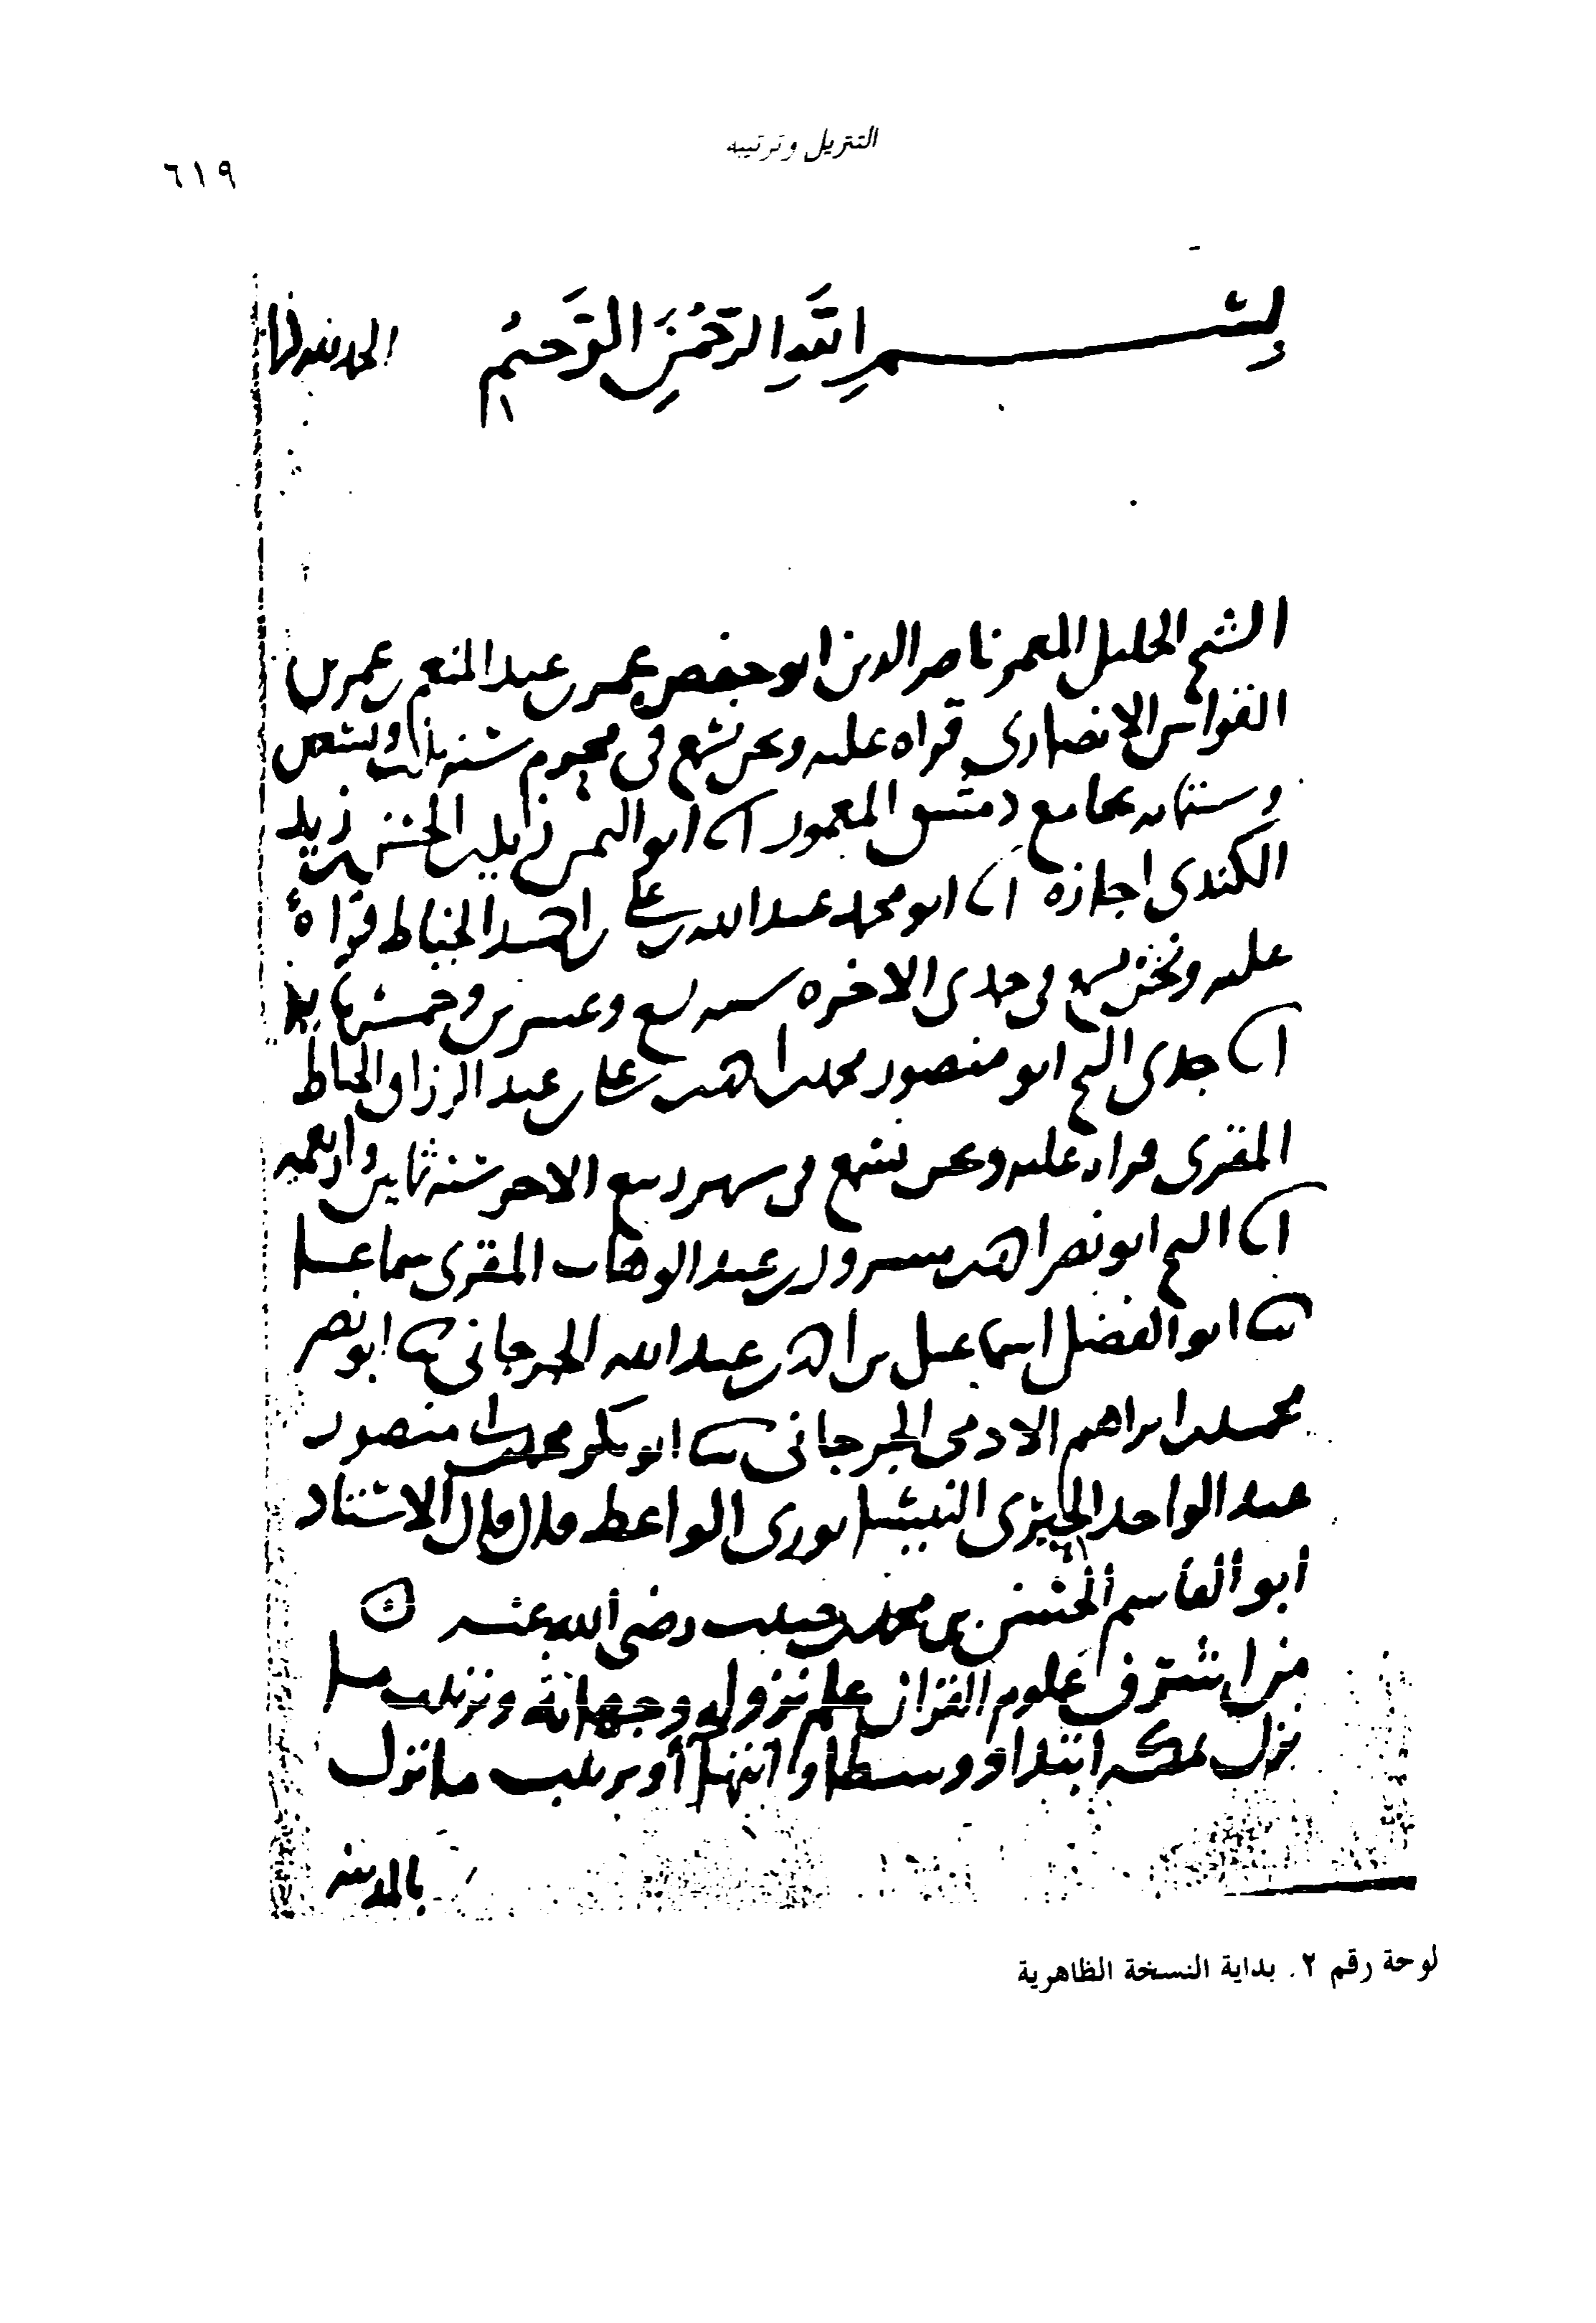 التنزيل وترتيبه
٦١٩
بسم الله الرحمن الرحيم الحمد لله
الشيخ الجليل المعمر ناصر الدين ابو حفص عمر بن عبد المنعم بن عمر بن
القواس الانصاري قراة عليه ونحن نسمع في محرم سنة ثلاث وتسعين
وستمايه بجامع دمشق المعمور انا ابو اليمن زيد بن الحسن بن زيد
الكندي اجازة انا ابو محمد عبد الله بن علي بن احمد الخياط قراةً
عليه ونحن نسمع في جمادى الاخره سنه تسع وعشرين وخمسمايه
انا جدي الشيخ ابو منصور محمد بن احمد بن علي بن عبد الرزاق الخياط
المقرى قراه عليه ونحن نسمع في شهر ربيع الاخر سنة ثمانين واربعميه
انا الشيخ ابو نصر احمد بن مسرور بن عبد الوهاب المقرى سماعا
ثنا ابو الفضل اسماعيل بن احمد بن عبد الله الجرجاني ثنا ابو نصر
محمد بن ابراهيم الادمي الجرجاني ثنا ابو بكر محمد بن منصور
عبد الواحد الحيري النيسابوري الواعظ قال قال الاستاد
أبو القاسم الحسن بن محمد بن حبيب رضي الله عنه
من اشرف علوم القران علم نزوله وجهاته وترتيب ما
نزل بمكه ابتداء ووسطا وانتهاأ وترتيب ما نزل
بالمدينه
لوحة رقم ٢. بداية النسخة الظاهرية